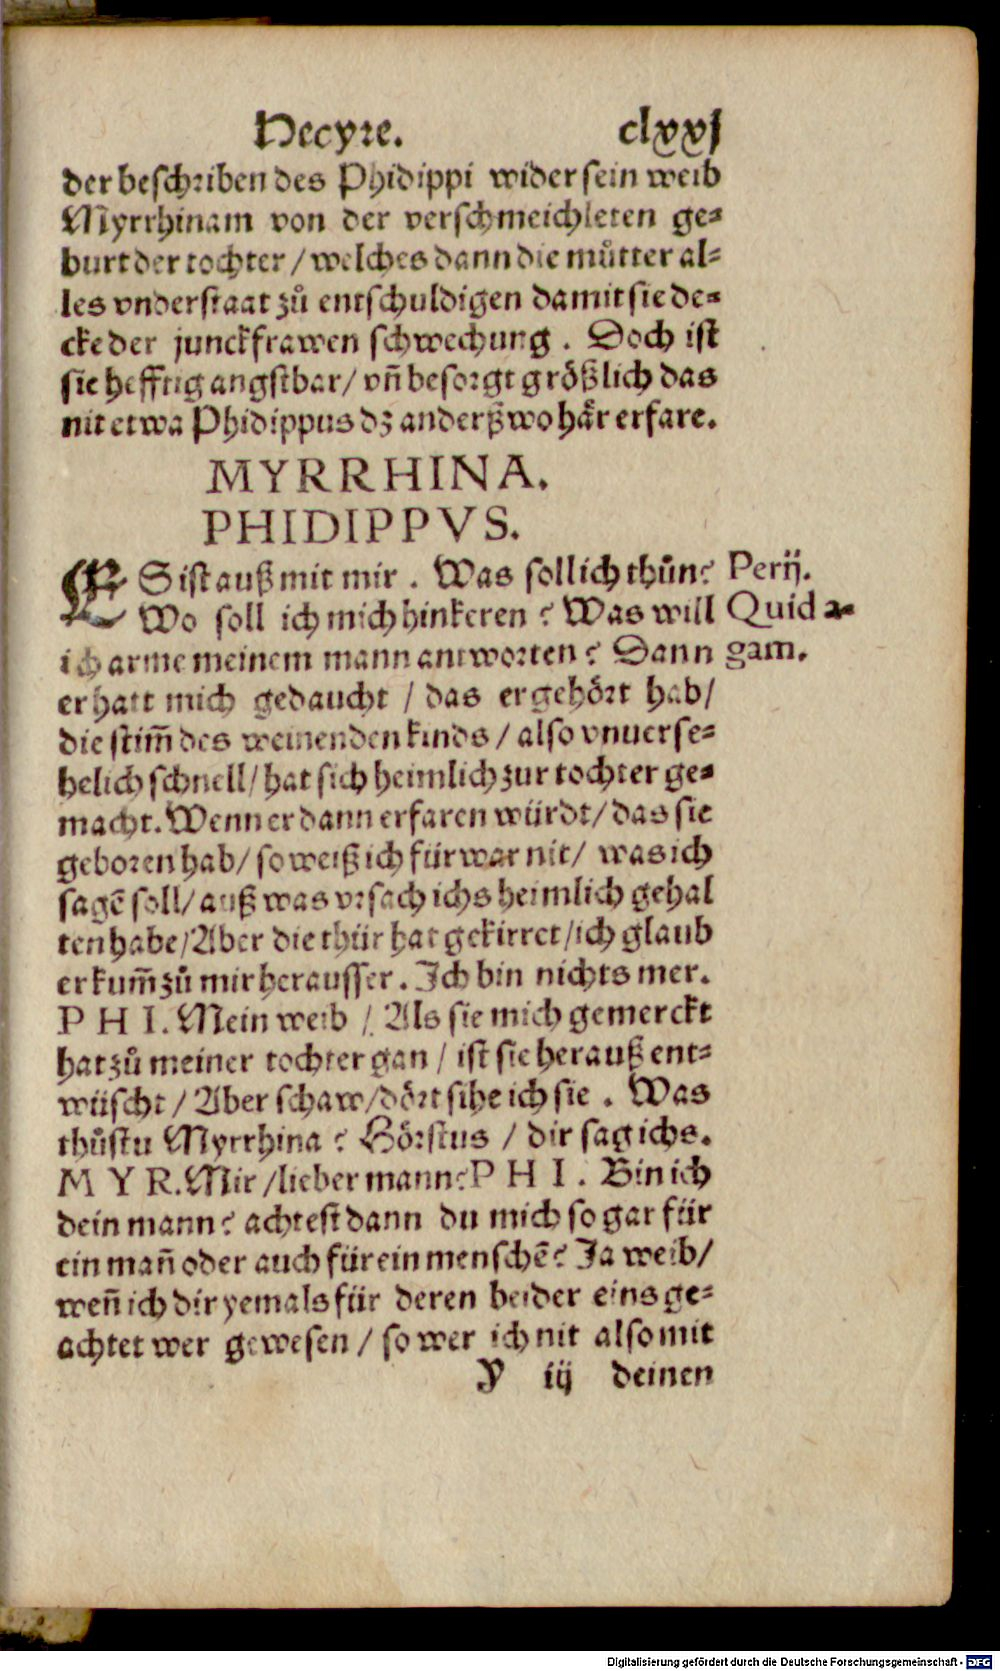 Hecyre. clxxj
der beschriben des Phidippi wider sein weib
Myrrhinam von der verschmeichleten ge⸗
burt der tochter / welches dann die můtter al⸗
les vnderstaat zů entschuldigen damit sie de⸗
cke der junckfrawen schwechung . Doch ist
sie hefftig angstbar / vñ besorgt größlich das
nit etwa Phidippus dz anderßwo här erfare.
MYRRHINA.
PHIDIPPVS.
ES ist auß mit mir . Was soll ich thůn? Perij.
Wo soll ich mich hinkeren ? Was will Quid a⸗
ich arme meinem mann antworten? Dann gam.
er hatt mich gedaucht / das er gehört hab /
die stim̃ des weinenden kinds / also vnuerse⸗
helich schnell / hat sich heimlich zur tochter ge⸗
macht. Wenn er dann erfaren würdt / das sie
geboren hab / so weiß ich fürwar nit / was ich
sagē soll / auß was vrsach ichs heimlich gehal
ten habe / Aber die thür hat gekirret / ich glaub
er kum̃ zů mir herausser . Ich bin nichts mer.
P H I . Mein weib / Als sie mich gemerckt
hat zů meiner tochter gan / ist sie herauß ent⸗
wüscht / Aber schaw / dört sihe ich sie . Was
thůstu Myrrhina ? Hörstus / dir sag ichs.
M Y R. Mir / lieber mann? P H I . Bin ich
dein mann? achtest dann du mich so gar für
ein mañ oder auch für ein menschē? Ja weib /
weñ ich dir yemals für deren beider eins ge⸗
achtet wer gewesen / so wer ich nit also mit
Y iij deinen
Digitalisierung gefördert durch die Deutsche Forschungsgemeinschaft - DFG